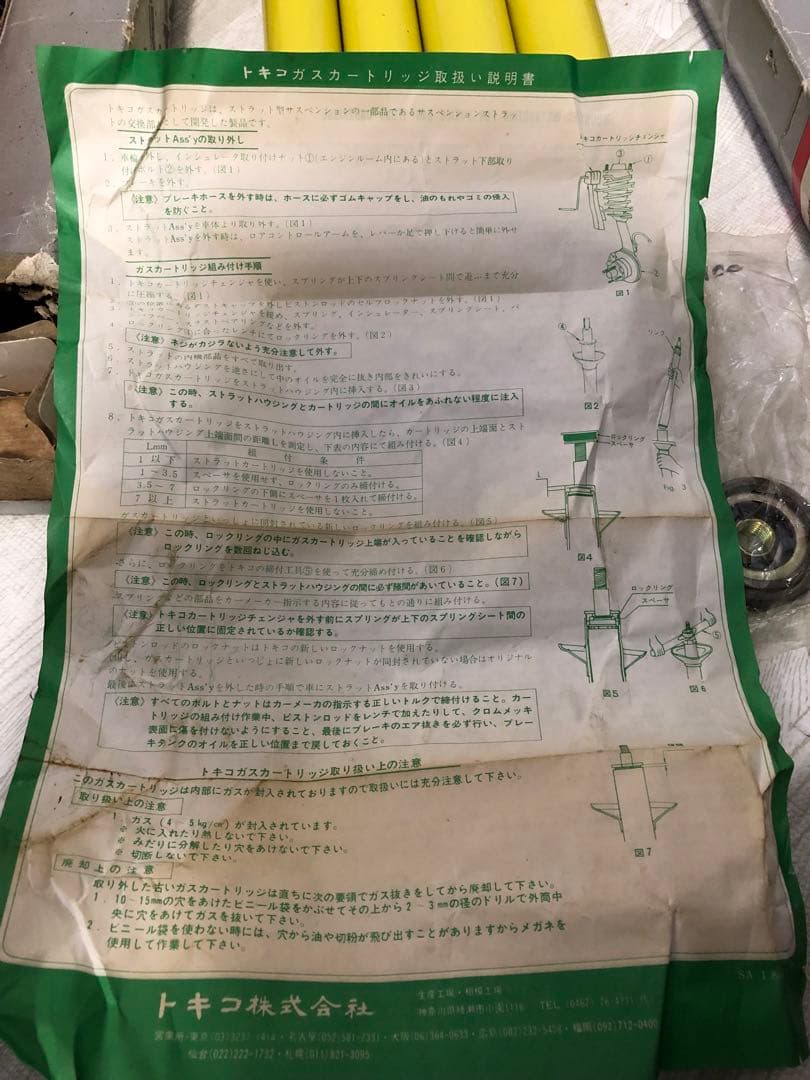 トキコガスカートリッジ取扱い説明書
トキコガスカートリッジは、ストラット型サスペンションの一部品であるサスペンションストラッ
トの交換部 として開発した製品です。
ストラットAss'yの取り外し
1. 車輪 外し、インシュレータ取り付けナット①(エンジンルーム内にある)とストラット下部取り
付 ボルト②を外す。(図1)
2. ーキを外す。
〈注意〉ブレーキホースを外す時は、ホースに必ずゴムキャップをし、油のもれやゴミの侵入
を防ぐこと。
3. ストラットAss'yを車体より取り外す。(図1)
ストラットAss'yを外す時は、ロアコントロールアームを、レバーか足で押し下げると簡単に外せ
ます。
ガスカートリッジ組み付け手順
1. トキコカートリッジチェンジャを使い、スプリングが上下のスプリングシート間で遊ぶまで充分
に圧縮する。(図1)
キャップを外しピストンロッドのセルフロックナットを外す。(図1)
チェンジャを緩め、スプリング、インシュレーター、スプリングシート、バ
ベアリングなどを外す。
4. ロックリング④に合ったレンチにてロックリングを外す。(図2)
〈注意〉ネジがカジラないよう充分注意して外す。
5. ストラットの内機部品をすべて取り出す。
6. ストラットハウジングを逆さにして中のオイルを完全に抜き内部をきれいにする。
7. トキコガスカートリッジをストラットハウジング内に挿入する。(図3)
〈注意〉この時、ストラットハウジングとカートリッジの間にオイルをあふれない程度に注入
する。
8. トキコガスカートリッジをストラットハウジング内に挿入したら、カートリッジの上端面とスト
ラットハウジング上端面間の距離Lを測定し、下表の内容にて組み付ける。(図4)
Lmm 組 付 条 件
1 以下 ストラットカートリッジを使用しないこと。
1~3.5 スペーサを使用せず、ロックリングのみ締付ける。
3.5~7 ロックリングの下側にスペーサを1枚入れて締付ける。
7 以上 ストラットカートリッジを使用しないこと。
ガスカートリッジといっしょに同封されている新しいロックリングを組み付ける。(図5)
〈注意〉この時、ロックリングの中にガスカートリッジ上端が入っていることを確認しながら
ロックリングを数回ねじ込む。
さらに、ロックリングをトキコの締付工具⑤を使って充分締め付ける。(図6)
〈注意〉この時、ロックリングとストラットハウジングの間に必ず隙間があいていること。(図7)
スプリングなどの部品をカーメーカー指示する内容に従ってもとの通りに組み付ける。
〈注意〉トキコカートリッジチェンジャを外す前にスプリングが上下のスプリングシート間の
正しい位置に固定されているか確認する。
ピストンロッドのロックナットはトキコの新しいロックナットを使用する。
但し、ガスカートリッジといっしょに新しいロックナットが同封されていない場合はオリジナル
のナットを使用する。
最後にストラットAss'yを外した時の手順で車にストラットAss'yを取り付ける。
〈注意〉すべてのボルトとナットはカーメーカの指示する正しいトルクで締付けること。カー
トリッジの組み付け作業中、ピストンロッドをレンチで加えたりして、クロムメッキ
表面に傷を付けないようにすること、最後にブレーキのエア抜きを必ず行い、ブレー
キタンクのオイルを正しい位置まで戻しておくこと。
トキコガスカートリッジ取り扱い上の注意
このガスカートリッジは内部にガスが封入されておりますので取扱いには充分注意して下さい。
取り扱い上の注意
1. ガス(4~5kg/cm²)が封入されています。
※ 火に入れたり熱しないで下さい。
※ みだりに分解したり穴をあけないで下さい。
※ 切断しないで下さい。
廃却上の注意
取り外した古いガスカートリッジは直ちに次の要領でガス抜きをしてから廃却して下さい。
1. 10~15mmの穴をあけたビニール袋をかぶせてその上から2~3mmの径のドリルで外筒中
央に穴をあけてガスを抜いて下さい。
2. ビニール袋を使わない時には、穴から油や切粉が飛び出すことがありますからメガネを
使用して作業して下さい。
トキコカートリッジチェンジャ
③
①
2
図1
④
図2
リング
Fig. 3
ロックリング
スペーサ
L
図4
ロックリング
スペーサ
図5
⑤
図6
図7
SA 18
トキコ株式会社
生産工場・相模工場
神奈川県綾瀬市小園1116 TEL (0467)
営業所・東京(03) ・名古屋(052) ・大阪(06)364-0633・広島(082) ・福岡(092)712-0400
仙台(022)222-1732・札幌(011)821-3095